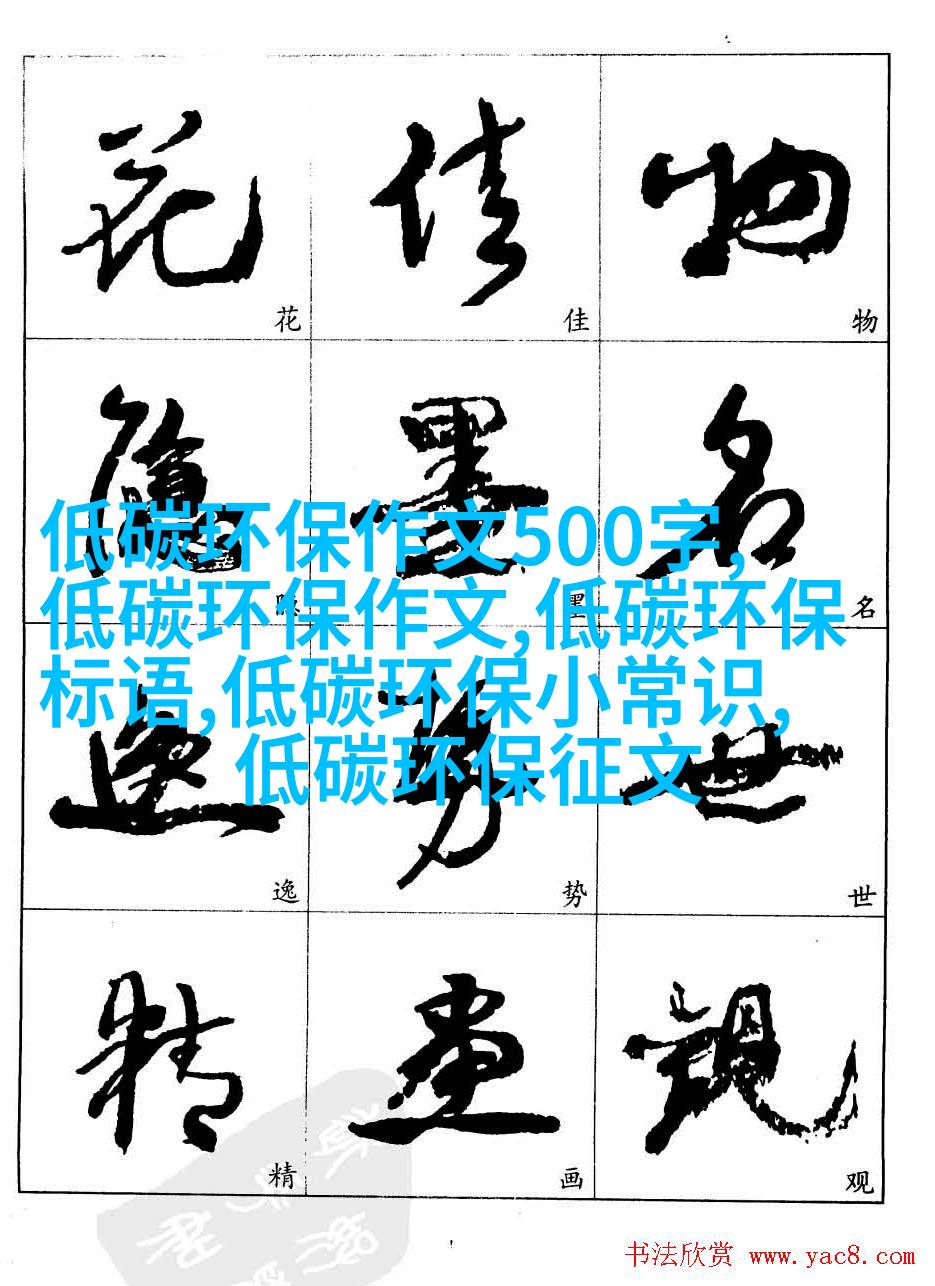 花 佳 物
花 佳 物
墨 名
低碳环保作文500字,
低碳环保作文,低碳环保
标语,低碳环保小常识,
低碳环保征文
墨 名
逸 势 世
逸 势 世
精 画 观
精 画 观
书法欣赏 www.yac8.com